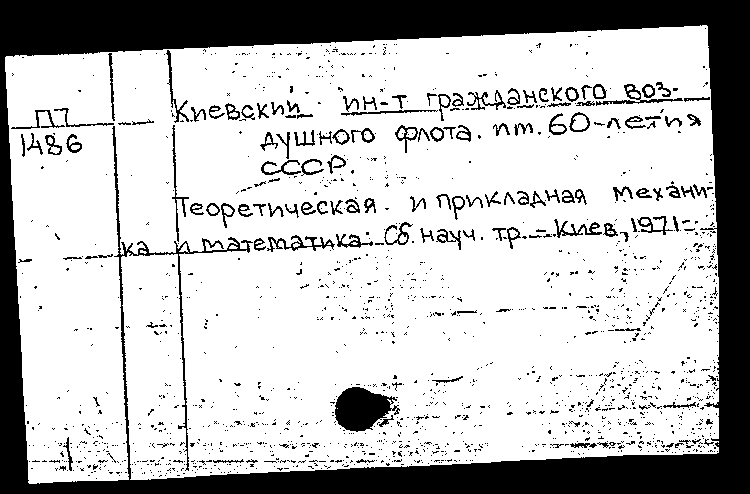 П7
1486
Киевский ин-т гражданского воз-
душного флота. им. 60-летия
СССР.
Теоретическая и прикладная механи-
ка и математика: Сб. науч. тр. – Киев, 1971–